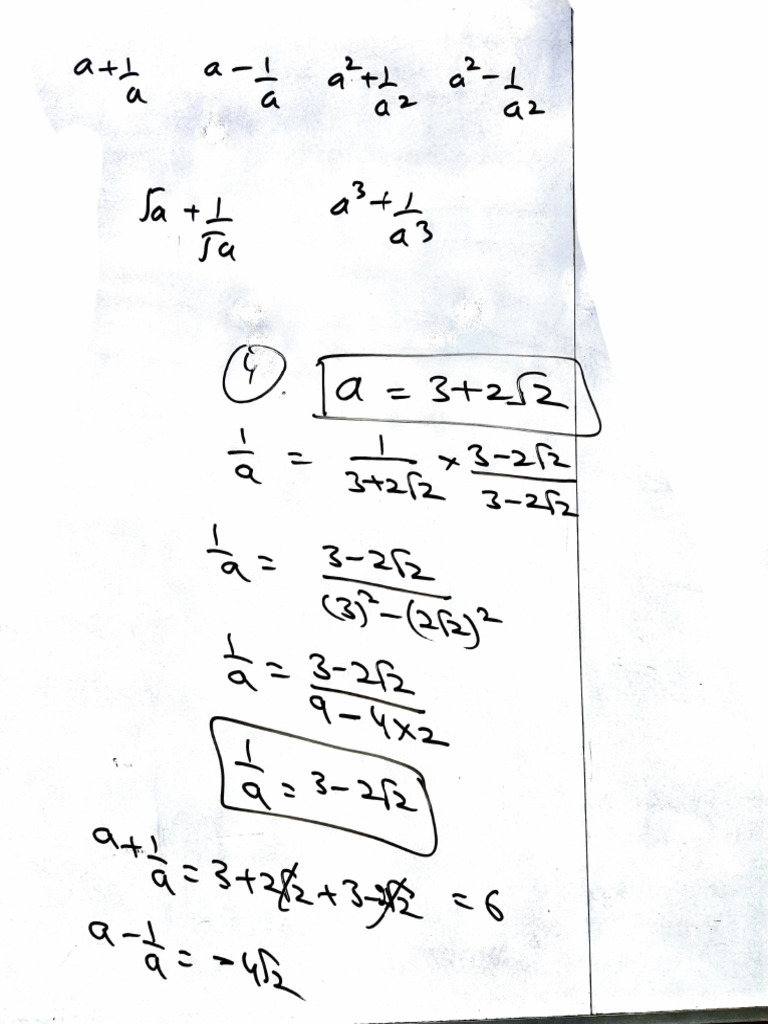 a+1/a a-1/a a²+1/a² a²-1/a²
√a+1/√a a³+1/a³
4 a = 3+2√2
1/a = 1/(3+2√2) × (3-2√2)/(3-2√2)
1/a = (3-2√2)/((3)²-(2√2)²)
1/a = (3-2√2)/(9-4×2)
1/a = 3-2√2
a+1/a = 3+2√2+3-2√2 = 6
a-1/a = -4√2